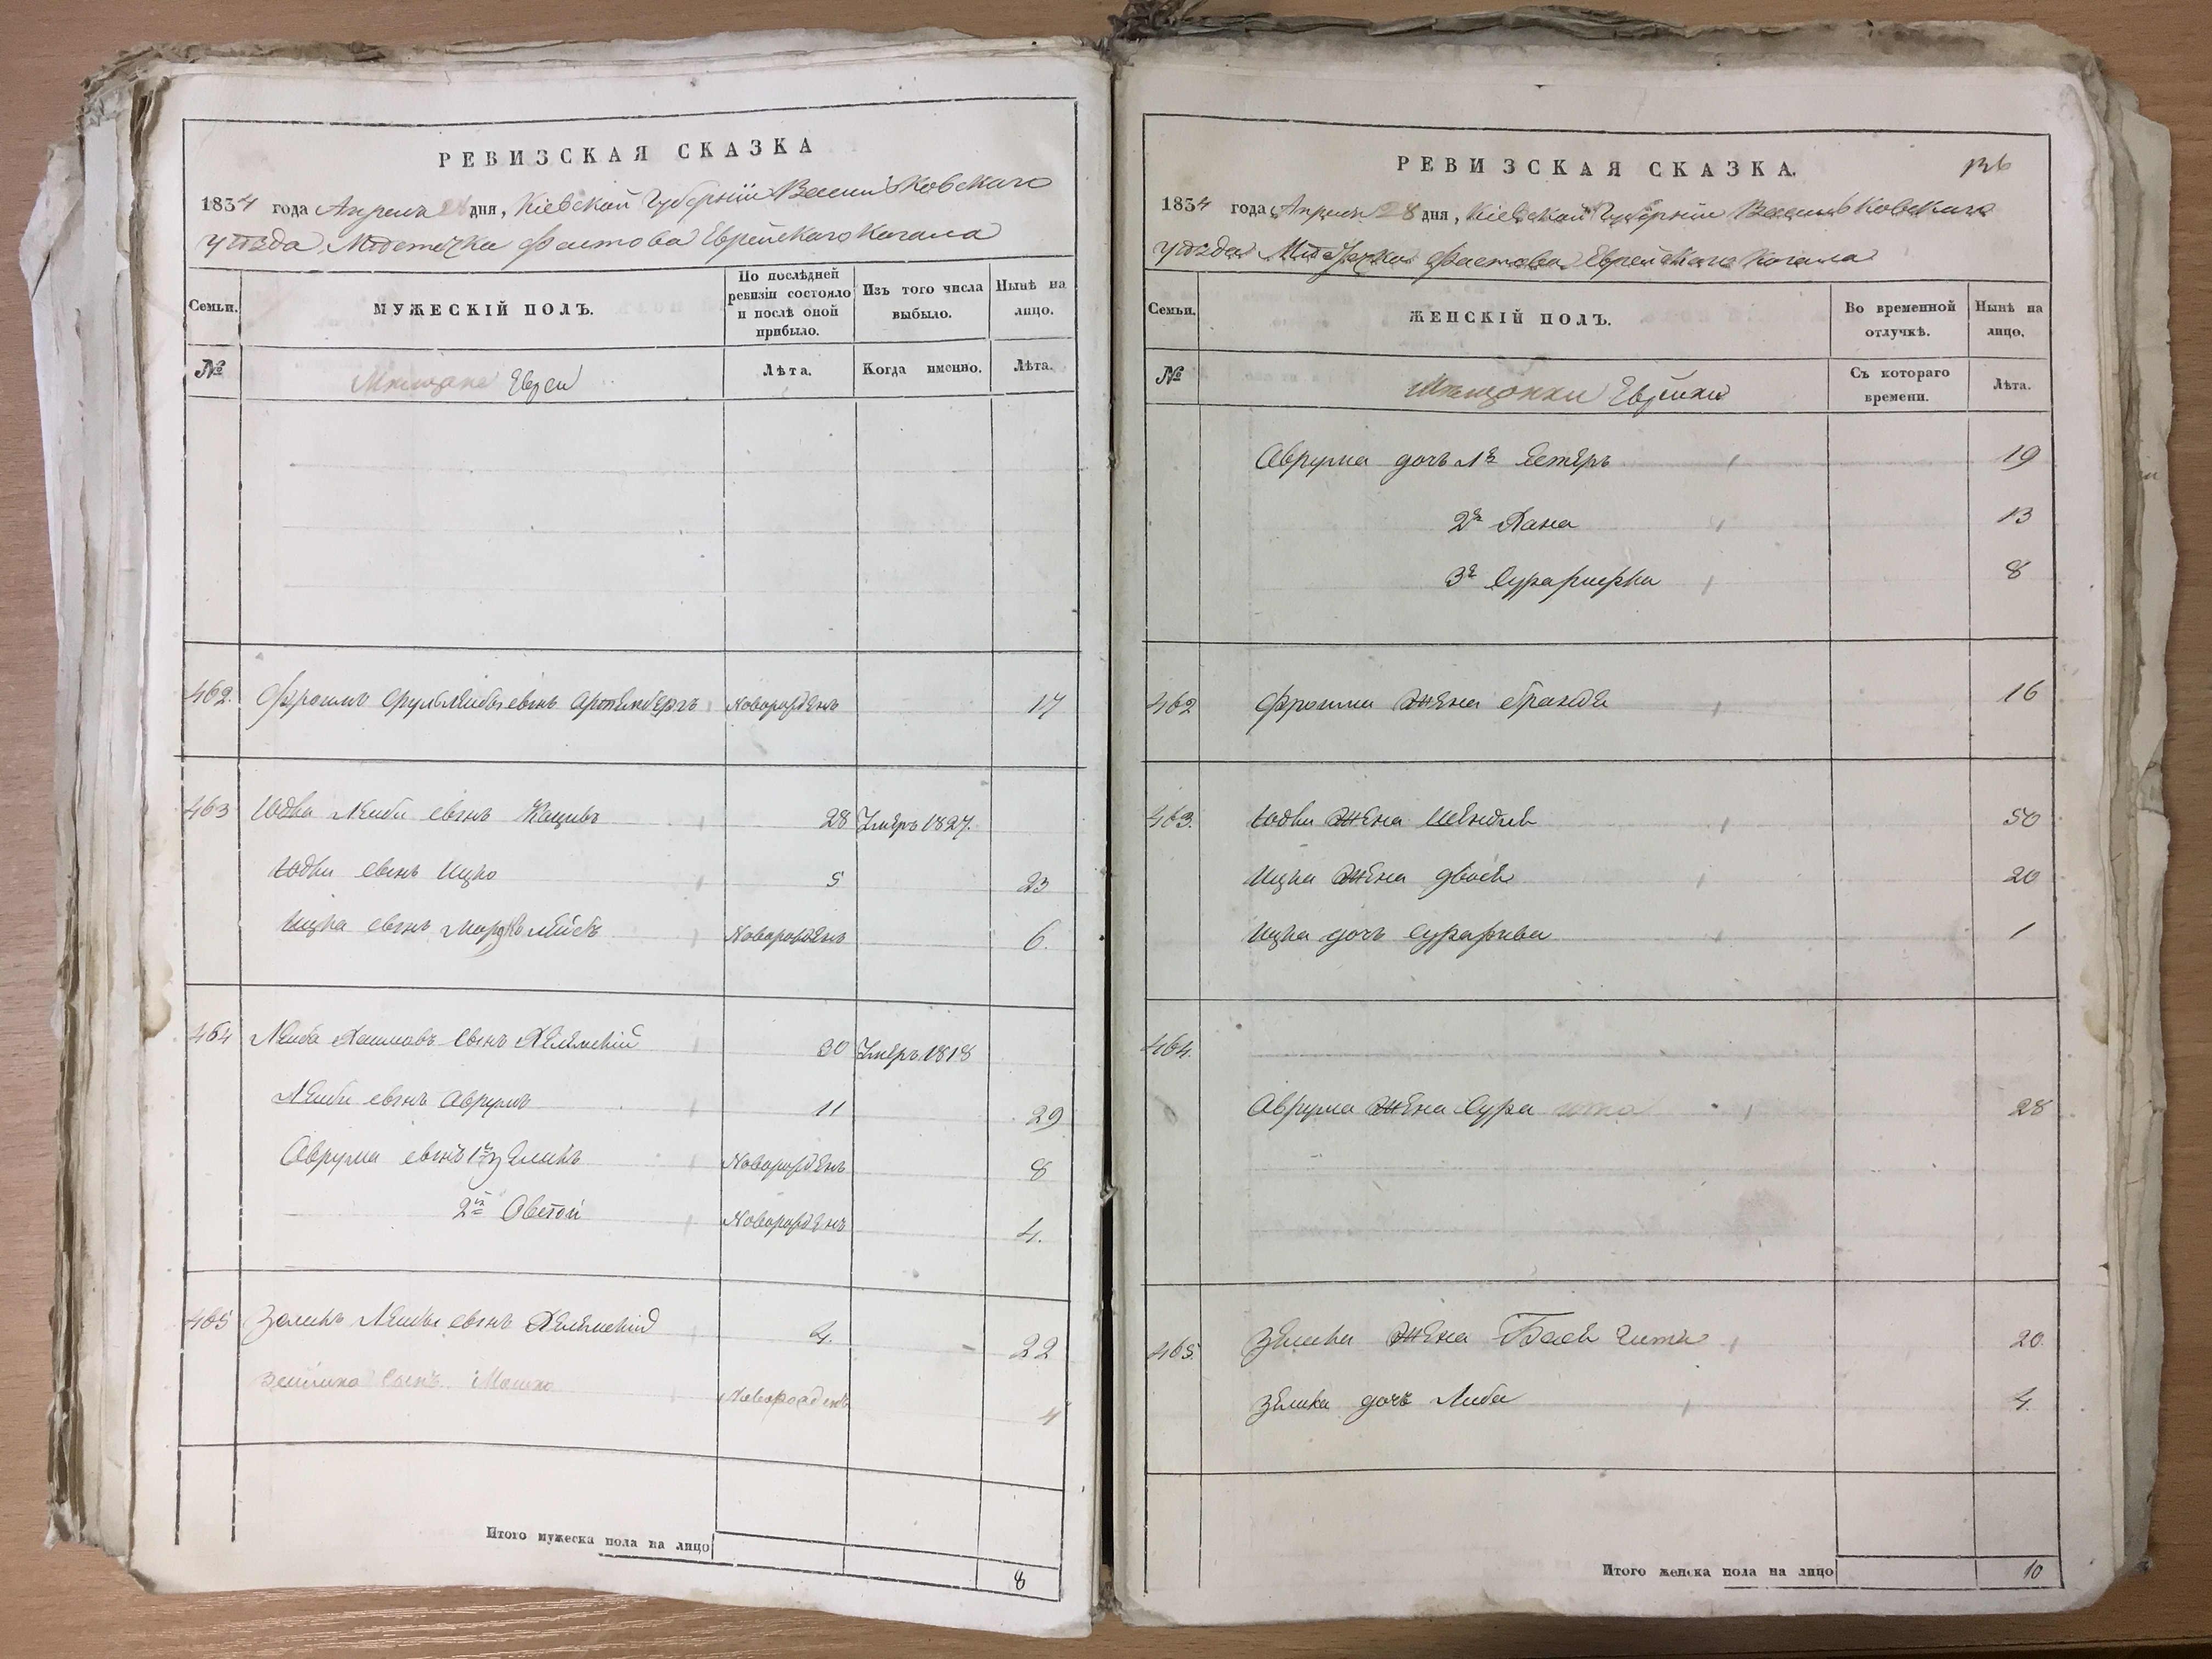 РЕВИЗСКАЯ СКАЗКА
1834 года Апреля 28 дня, Кіевской Губерніи Васильковскаго
уѣзда Мѣстечка Фастова Еврейскаго Кагала
Семьи. МУЖЕСКІЙ ПОЛЪ. По послѣдней ревизіи состояло и послѣ оной прибыло. Изъ того числа выбыло. Нынѣ на лицо.
№ Мѣщане Евреи Лѣта. Когда именно. Лѣта.
462. Фроимъ Сруль Лейбы сынъ новорожденъ 17
463 Юдка Лейбы сынъ Кацывъ 28 Умеръ 1827.
Юдки сынъ Ицко 5 23
Ицка сынъ Мордко новорожденъ 6.
464 Лейба Хаимовъ сынъ Хелемскій 30 Умеръ 1818
Лейбы сынъ Аврумъ 11 29
Аврума сынъ 1й Зеликъ Новорожденъ 8
2й Овсѣй Новорожденъ 4.
465 Зеликъ Лейбы сынъ Хелемскій 4. 22
Зелика сынъ Мошко Новорожденъ 4
Итого мужеска пола на лицо 8
РЕВИЗСКАЯ СКАЗКА. 136
1834 года Апреля 28 дня, Кіевской Губерніи Васильковскаго
уѣзда Мѣстечка Фастова Еврейскаго Кагала
Семьи. ЖЕНСКІЙ ПОЛЪ. Во временной отлучкѣ. Нынѣ на лицо.
№ Мѣщанки Еврейки Съ котораго времени. Лѣта.
Аврума дочь 1я Естеръ 19
2я Хана 13
3я Сурарифка 8
462 Фроима жена Бранде 16
463. Юдки жена Шендля 50
Ицка жена Двося 20
Ицка дочь Сурарива 1
464.
Аврума жена Сура 28
465. Зелика жена Бася Гитя 20
Зелика дочь Либа 4.
Итого женска пола на лицо 10